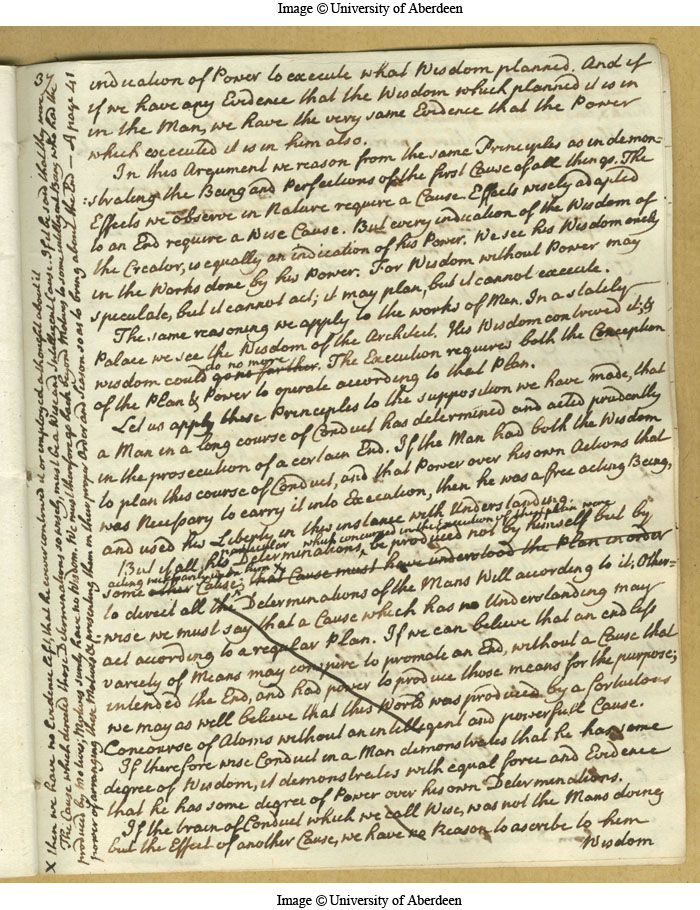 Image © University of Aberdeen
37
indication of Power to execute what Wisdom planned. And if
if we have any Evidence that the Wisdom which planned it is in
in the Man, we have the very same Evidence that the Power
which executed it is in him also.
In this Argument we reason from the same Principles as in demon-
:strating the Being and Perfections of the first Cause of all things. The
Effects we observe in Nature require a Cause. Effects wisely adapted
to an End require a Wise Cause. But every indication of the Wisdom of
the Creator, is equally an indication of his Power. We see his Wisdom onely
in the Works done by his Power. For Wisdom without Power may
speculate, but it cannot act; it may plan, but it cannot execute.
The same reasoning we apply to the works of Men. In a stately
Palace we see the Wisdom of the Architect. His Wisdom contrived it; &
do no more
wisdom could go no farther. The Execution requires both the Conception
of the Plan & Power to operate according to that Plan.
Let us apply these Principles to the supposition we have made, that
a Man in a long course of Conduct has determined and acted prudently
in the prosecution of a certain End. If the Man had both the Wisdom
to plan this course of Conduct, and that Power over his own Actions that
was Necessary to carry it into Execution, then he was a free acting Being,
and used his Liberty in this instance with Understanding.
particular which concurred in the execution of this plan were
But if all his Determinations, be produced not by himself but by
acting necessarily upon him X
some other Cause; that Cause must have understood the Plan in order
to direct all the Determinations of the Mans Will according to it; Other-
wise we must say that a Cause which has no Understanding may
act according to a regular Plan. If we can believe that an endless
variety of Means may conspire to promote an End, without a Cause that
intended the End, and had power to produce those means for the purpose;
we may as well believe that this World was produced by a fortuitous
Concourse of Atoms without an intelligent and powerfull Cause.
If therefore wise Conduct in a Man demonstrates that he has some
degree of Wisdom, it demonstrates with equal force and Evidence
that he has some degree of Power over his own Determinations.
If the train of Conduct which we call Wise, was not the Mans doing
but the Effect of another Cause, we have no Reason to ascribe to him
Wisdom
X then we have no Evidence left, that he ever contrived it or employed a thought about it
The Cause which directed those Determinations so wisely, must be a Wise and Intelligent Cause. If it be said that they were
produced by motives; Motives surely have no Wisdom. We must therefore go back beyond Motives to some intelligent Being who had the
power of arranging these Motives & presenting them in their proper Order and Season so as to bring about the End — A page 41
Image © University of Aberdeen